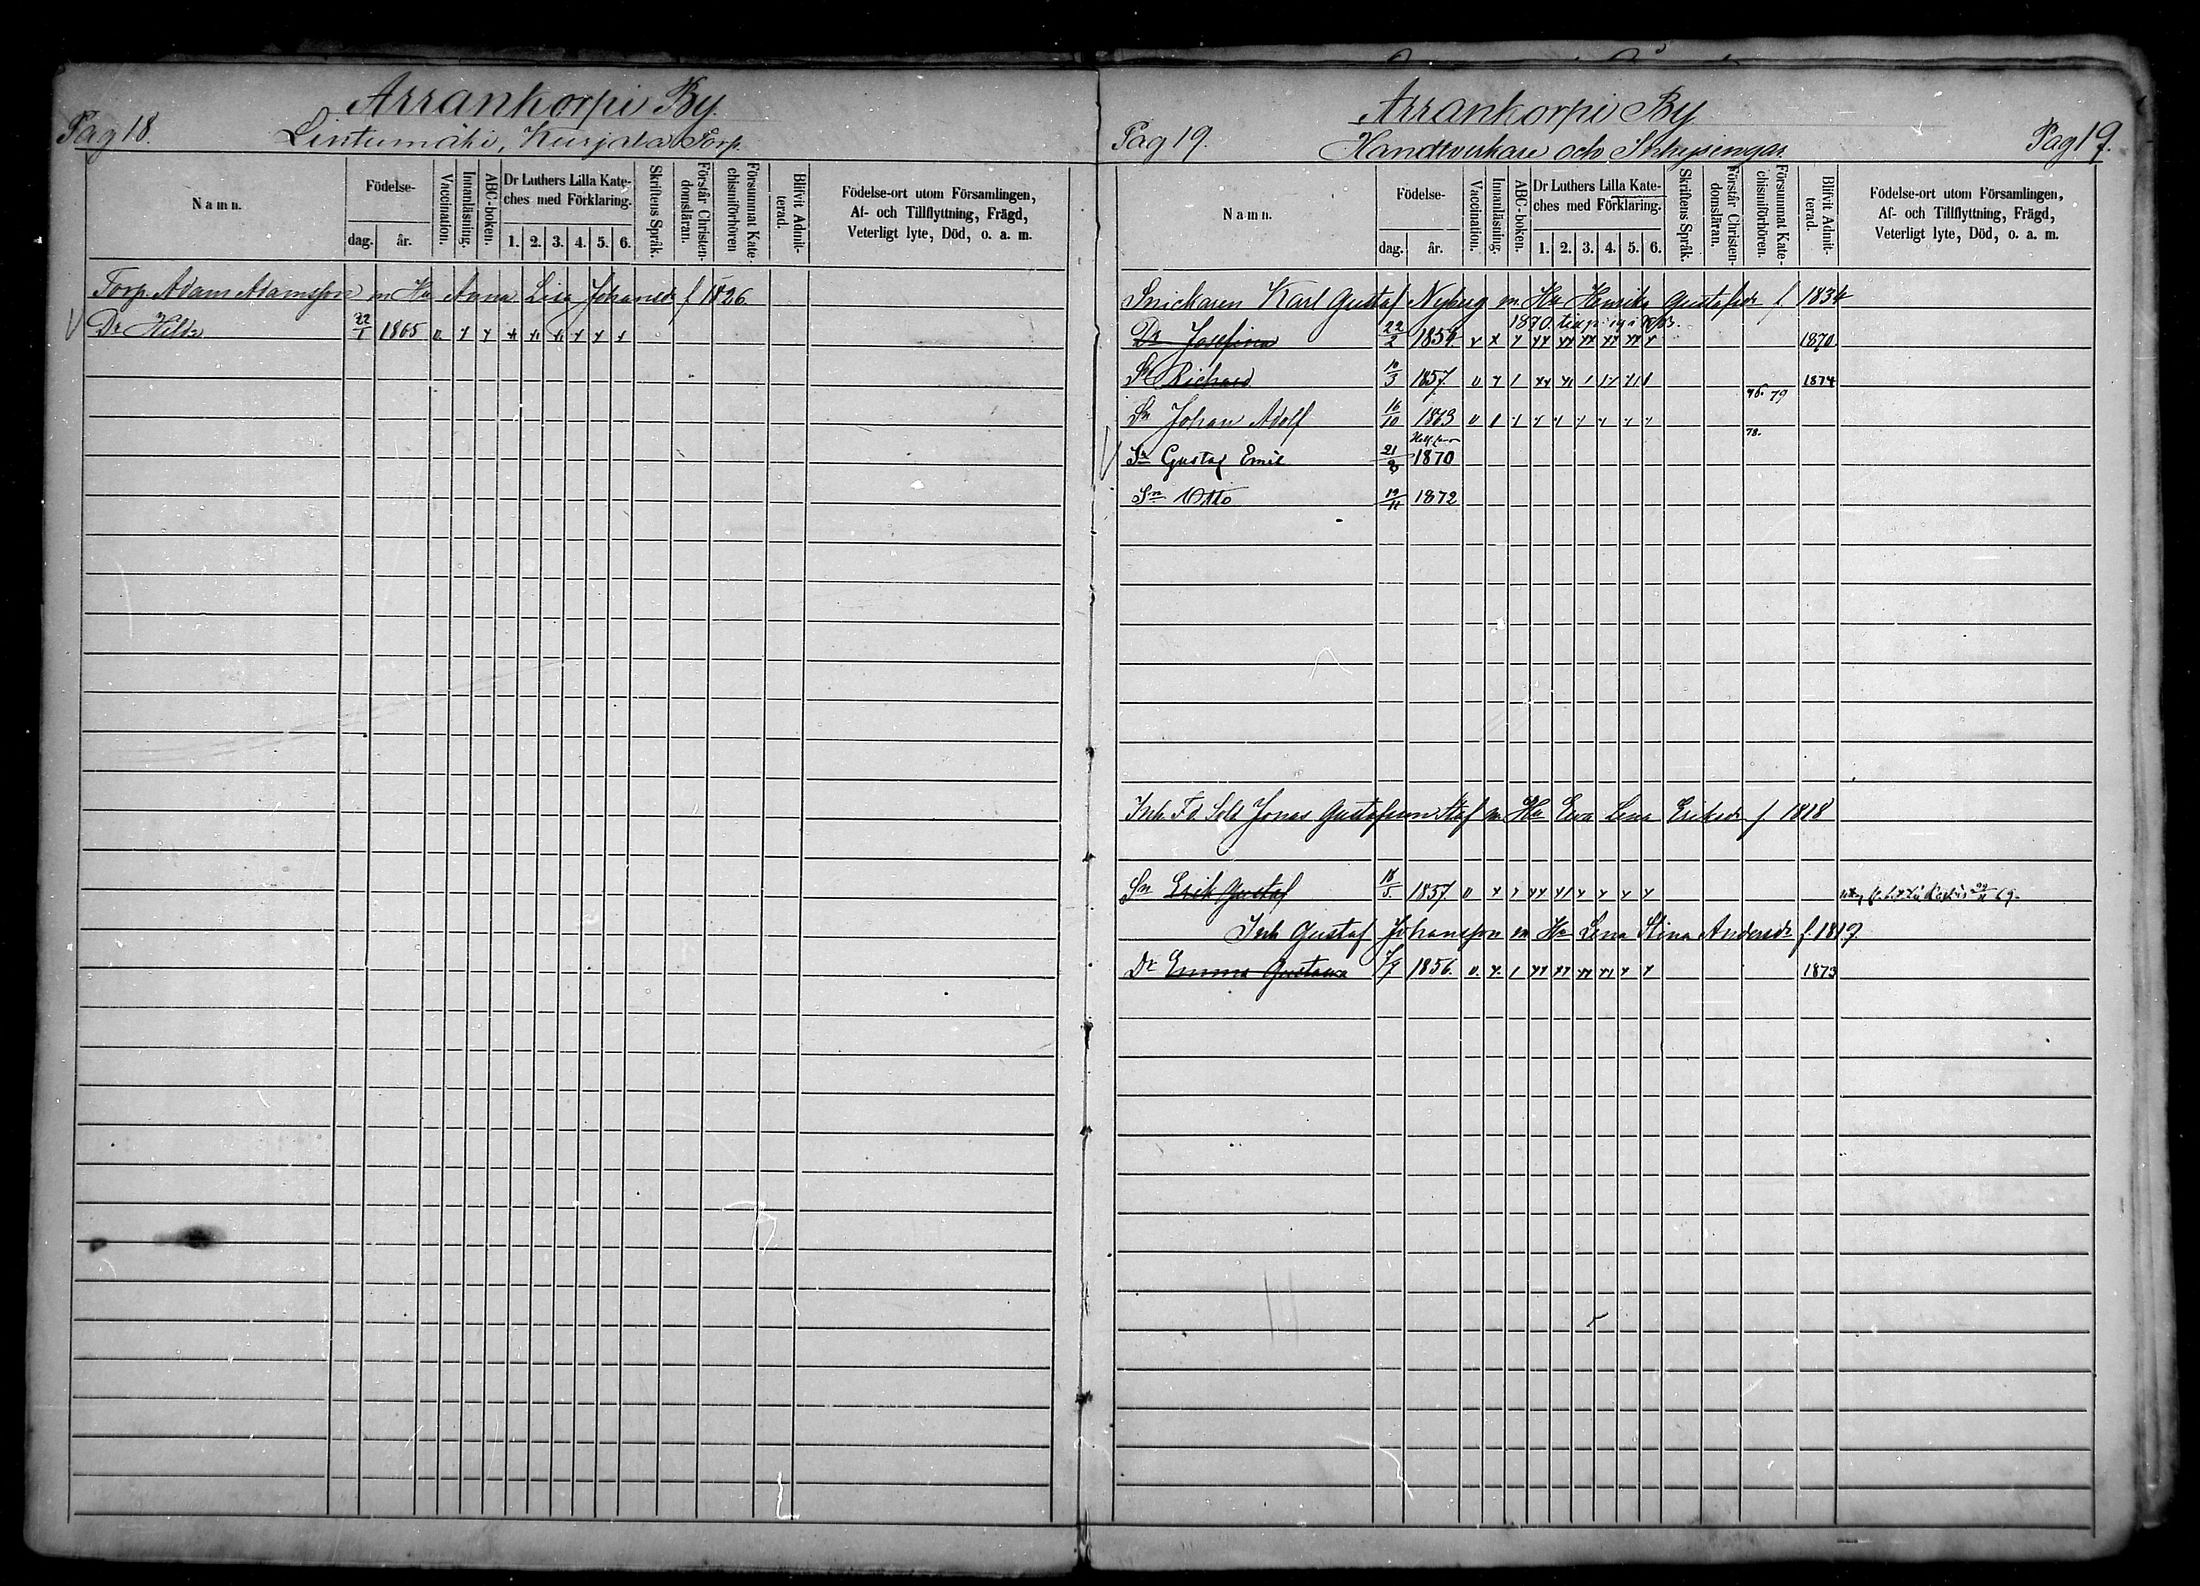 Arrankorpi By.
Pag 18.
Lintumäki, Kurjala Torp.
Namn.
Födelse-
dag.
år.
Vaccination.
Innanläsning.
ABC-boken.
Dr Luthers Lilla Kate-
ches med Förklaring.
1. 2. 3. 4. 5. 6.
Skriftens Språk.
Förstår Christen-
domsläran.
Försummat Kate-
chismiförhören
Blifvit Admit-
terad.
Födelse-ort utom Församlingen,
Af- och Tillflyttning, Frägd,
Veterligt lyte, Död, o. a. m.
Torp. Adam Adamsson m Ha Anna Lisa Johansdr f 1826
Dr Hilda 22/1 1865
Arrankorpi By
Pag 19.
Handtverkare och Inhysingar
Pag 19.
Namn.
Födelse-
dag.
år.
Vaccination.
Innanläsning.
ABC-boken.
Dr Luthers Lilla Kate-
ches med Förklaring.
1. 2. 3. 4. 5. 6.
Skriftens Språk.
Förstår Christen-
domsläran.
Försummat Kate-
chismiförhören.
Blifvit Admit-
terad.
Födelse-ort utom Församlingen,
Af- och Tillflyttning, Frägd,
Veterligt lyte, Död, o. a. m.
Snickaren Karl Gustaf Nyberg m Ha Henrika Gustafsdr f 1834
Dr Josefina 22/2 1854 1870
Sn Richard 10/3 1857 1874
76. 79
Sn Johan Adolf 16/10 1863
78.
Sn Gustaf Emil 21/8 1870
Sn Otto 19/11 1872
Inh. Fd. Sold Jonas Gustafsson Staf m Ha Eva Lena Eriksdr f. 1818
Sn Erik Gustaf 18/5 1857
Inh Gustaf Johansson m Ha Lena Stina Andersdr f. 1819
Dr Emma Gustava 1856 1873